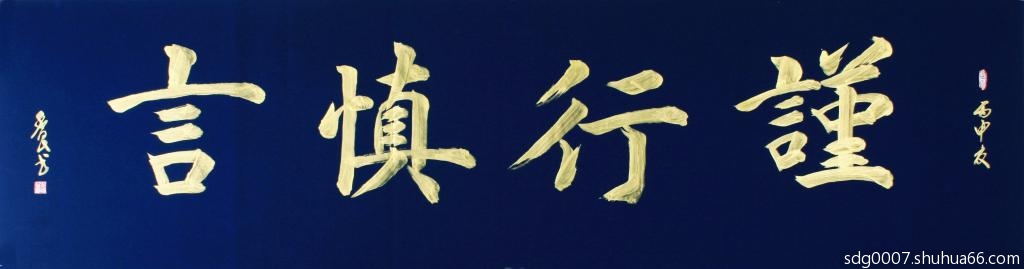 丙申夏
謹行慎言
sdg0007.shuhua66.com